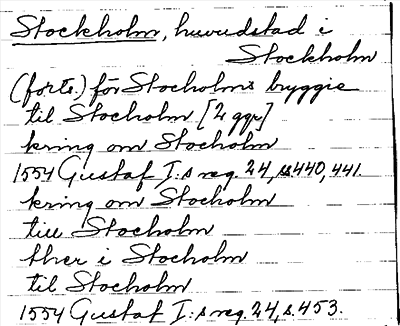 Stockholm, huvudstad i
Stockholm
(forts.) för Stocholms bryggie
til Stocholm [2 ggr]
kring om Stocholm
1554 Gustaf I:s reg. 24, s. 440, 441.
kring om Stocholm
till Stocholm
ther i Stocholm
til Stocholm
1554 Gustaf I:s reg. 24, s. 453.